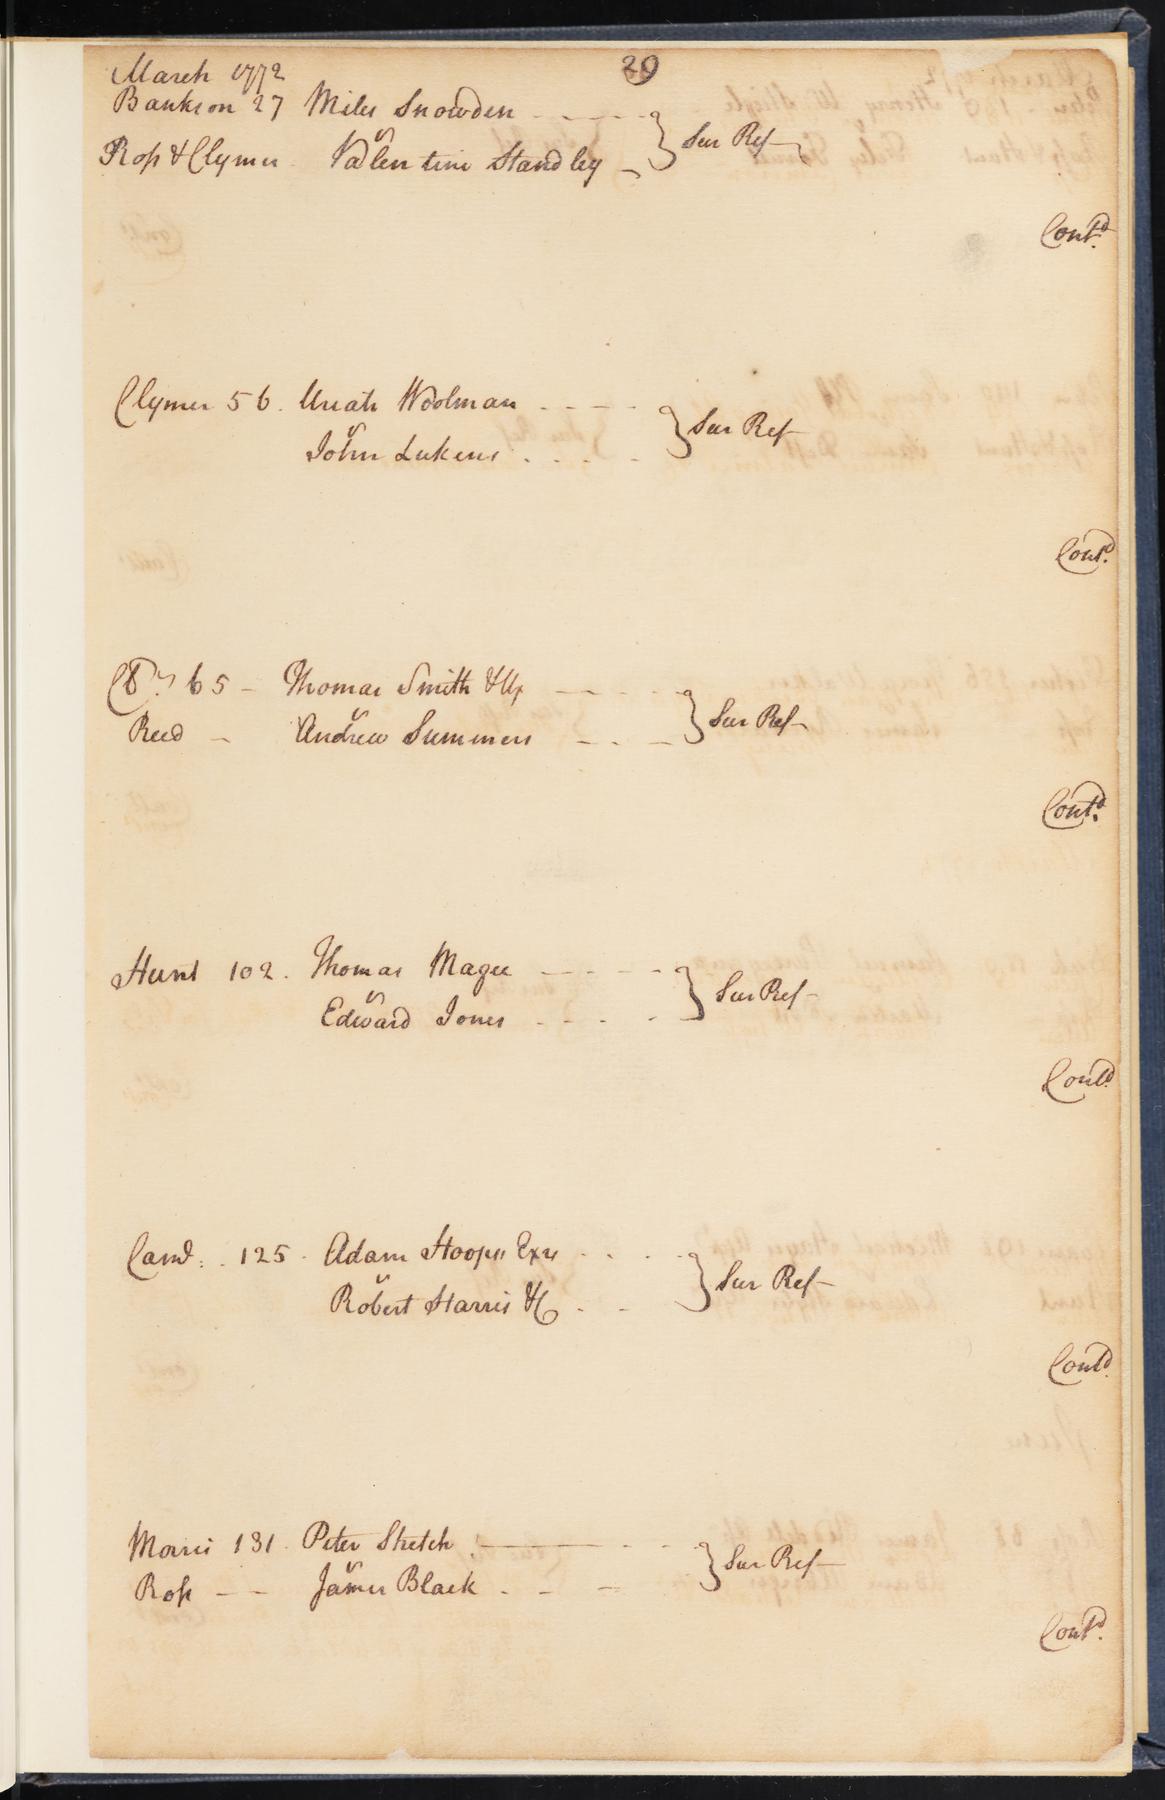 March 1772
29
Bankson 27 Miles Snowden
vs
Ross & Clymer Valentine Standley
Sur Ref
Contd
Clymer 56. Uriah Woolman
vs
John Lukens
Sur Ref
Contd
65 - Thomas Smith & Ux
vs
Reed - Andrew Summers
Sur Ref
Contd
Hunt 102. Thomas Magee
vs
Edward Jones
Sur Ref
Contd
125. Adam Hoops Exrs
vs
Robert Harris &c
Sur Ref
Contd
Morris 131. Peter Stretch
vs
Ross - - James Black
Sur Ref
Contd